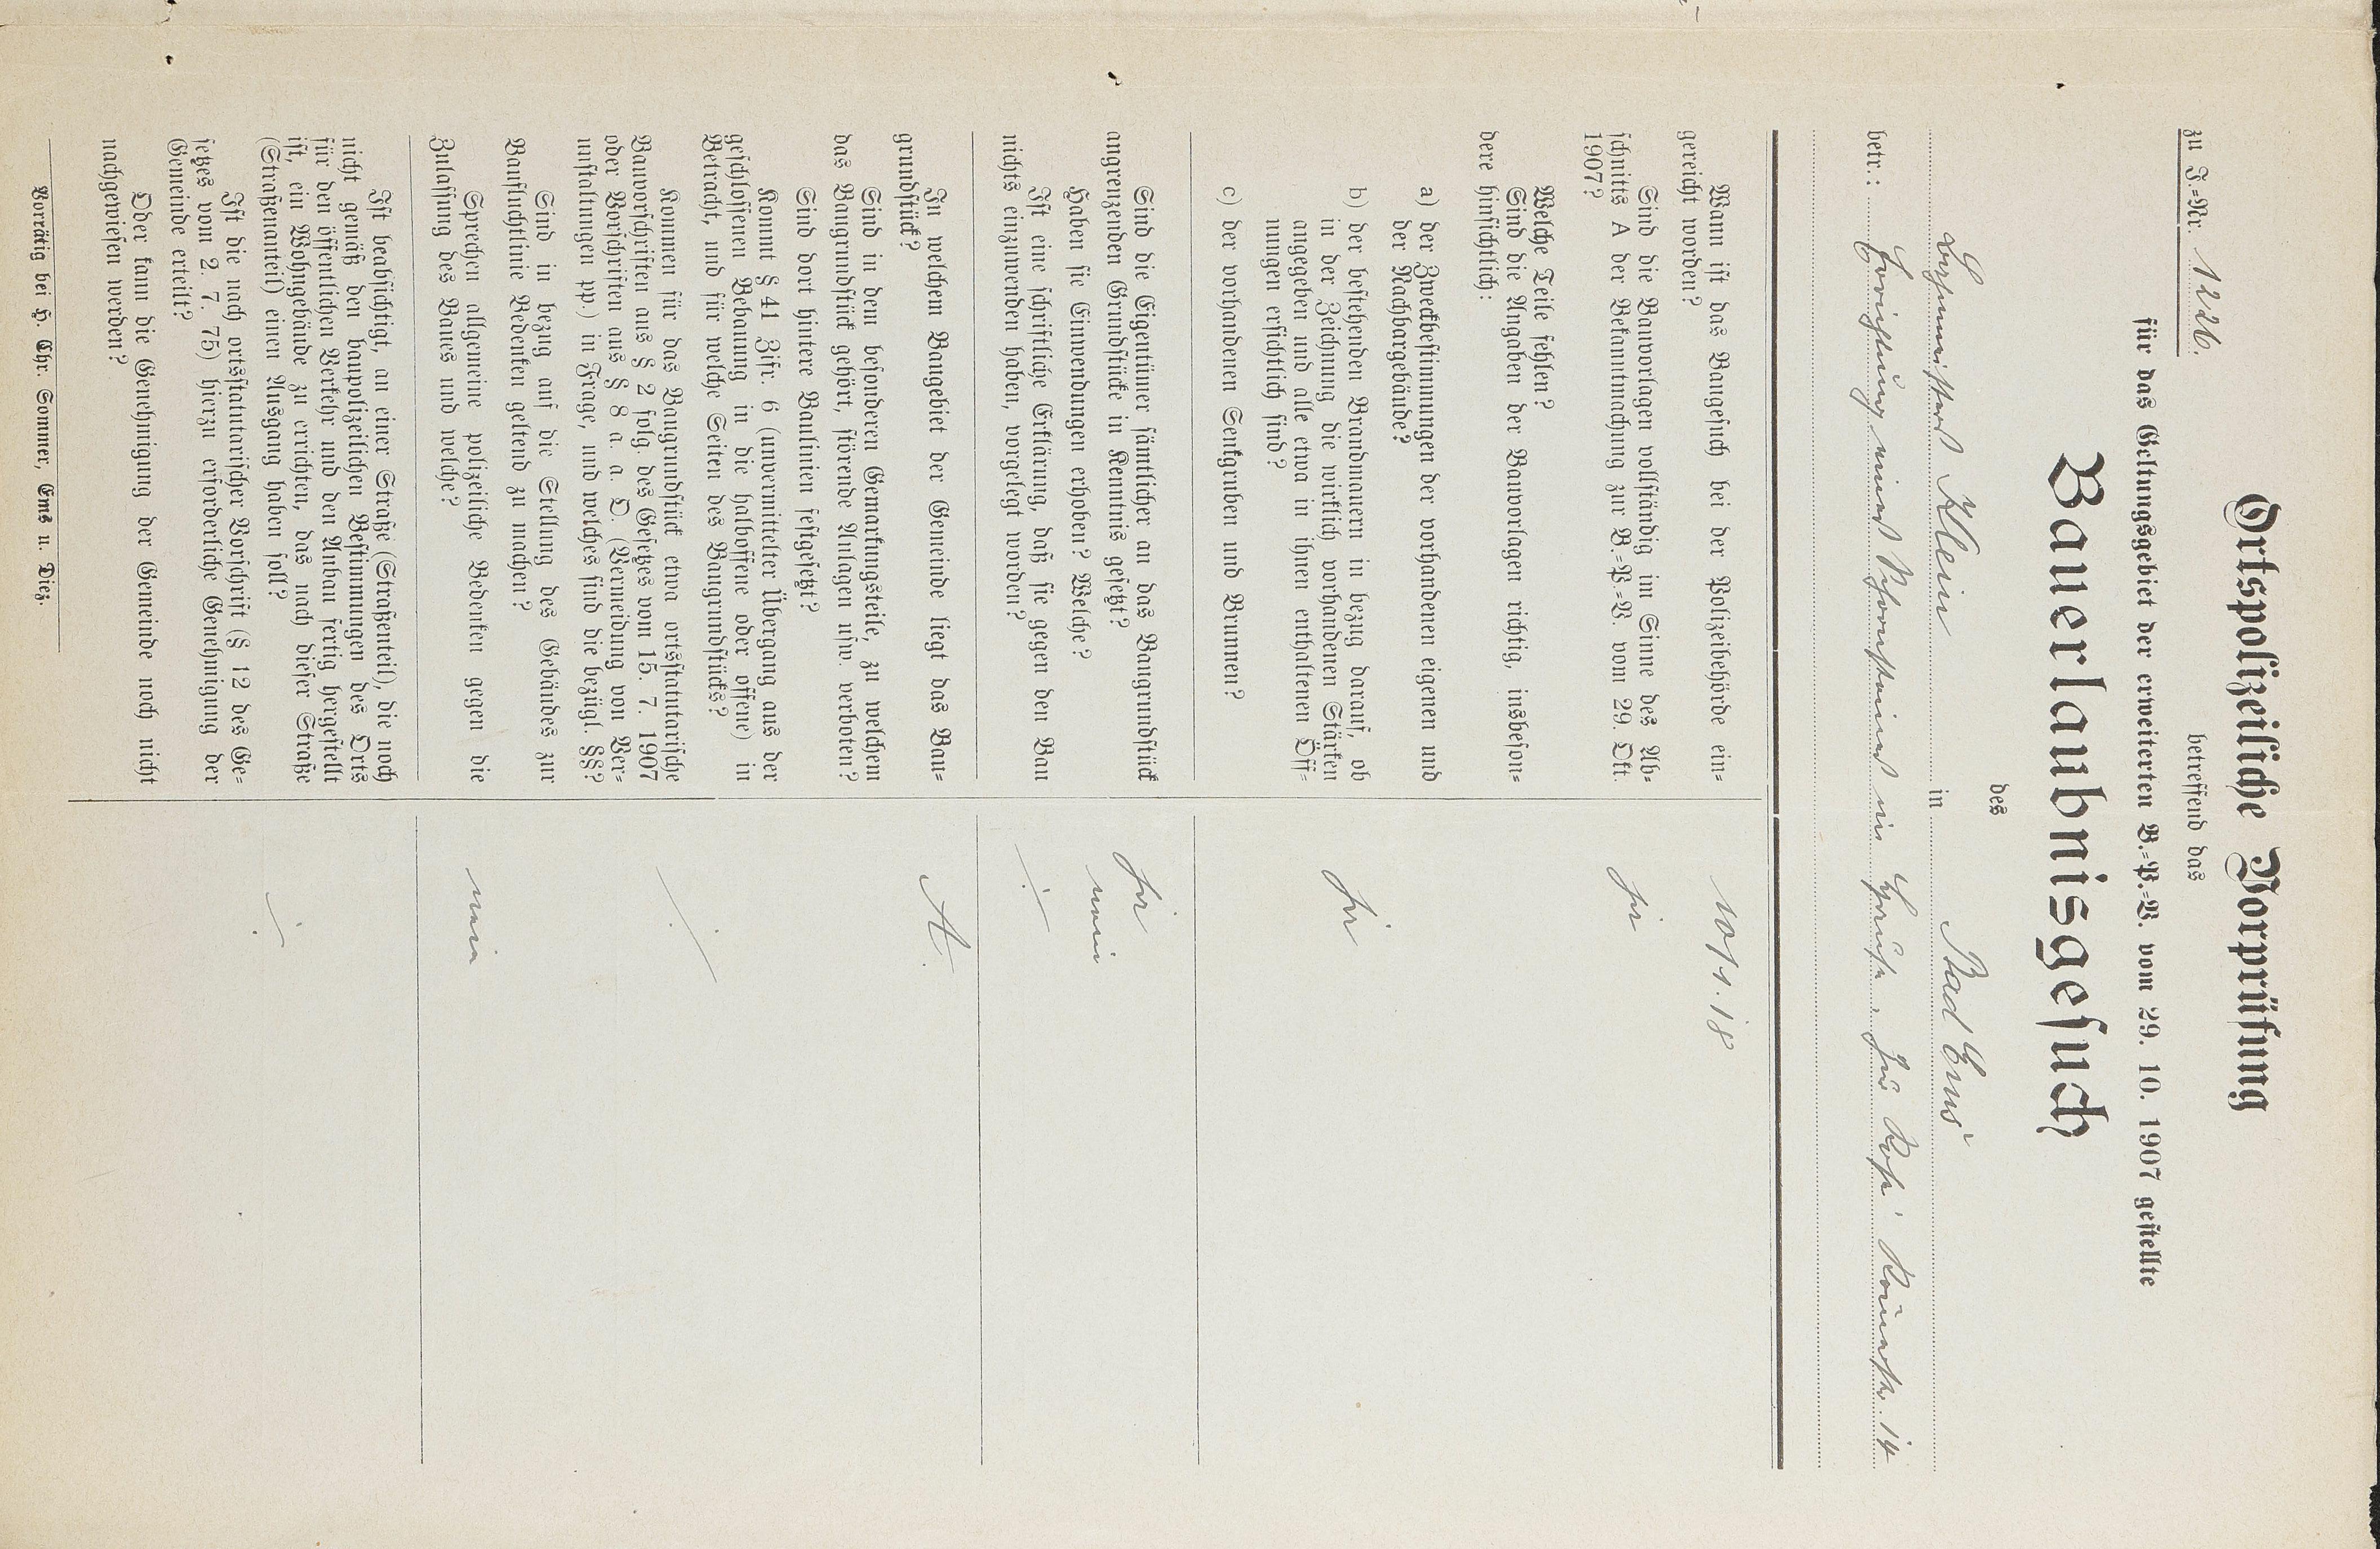 Ortspolizeiliche Vorprüfung
zu J.=Nr. 1226.
betreffend das
für das Geltungsgebiet der erweiterten B.=P.=V. vom 29. 10. 1907 gestellte
Bauerlaubnisgesuch
des
Klein in Bad Ems
betr.: Errichtung eines Schornsteins im Hause Zur Römerstr. 14
Wann ist das Baugesuch bei der Polizeibehörde ein=
gereicht worden?
10/1. 18
Sind die Bauvorlagen vollständig im Sinne des Ab=
schnitts A der Bekanntmachung zur B.=P.=V. vom 29. Okt.
1907?
ja
Welche Teile fehlen?
Sind die Angaben der Bauvorlagen richtig, insbeson=
dere hinsichtlich:
a) der Zweckbestimmungen der vorhandenen eigenen und
der Nachbargebäude?
b) der bestehenden Brandmauern in bezug darauf, ob
in der Zeichnung die wirklich vorhandenen Stärken
angegeben und alle etwa in ihnen enthaltenen Öff=
nungen ersichtlich sind?
ja
c) der vorhandenen Senkgruben und Brunnen?
Sind die Eigentümer sämtlicher an das Baugrundstück
angrenzenden Grundstücke in Kenntnis gesetzt?
ja
Haben sie Einwendungen erhoben? Welche?
nein
Ist eine schriftliche Erklärung, daß sie gegen den Bau
nichts einzuwenden haben, vorgelegt worden?
In welchem Baugebiet der Gemeinde liegt das Bau=
grundstück?
A.
Sind in dem besonderen Gemarkungsteile, zu welchem
das Baugrundstück gehört, störende Anlagen usw. verboten?
Sind dort hintere Baulinien festgesetzt?
Kommt § 41 Zifr. 6 (unvermittelter Übergang aus der
geschlossenen Bebauung in die halboffene oder offene) in
Betracht, und für welche Seiten des Baugrundstücks?
Kommen für das Baugrundstück etwa ortsstatutarische
Bauvorschriften aus § 2 folg. des Gesetzes vom 15. 7. 1907
oder Vorschriften aus § 8 a. a. O. (Vermeidung von Ver=
unstaltungen pp.) in Frage, und welches sind die bezügl. §§?
Sind in bezug auf die Stellung des Gebäudes zur
Baufluchtlinie Bedenken geltend zu machen?
Sprechen allgemeine polizeiliche Bedenken gegen die
Zulassung des Baues und welche?
nein
Ist beabsichtigt, an einer Straße (Straßenteil), die noch
nicht gemäß den baupolizeilichen Bestimmungen des Orts
für den öffentlichen Verkehr und den Anbau fertig hergestellt
ist, ein Wohngebäude zu errichten, das nach dieser Straße
(Straßenanteil) einen Ausgang haben soll?
Ist die nach ortsstatutarischer Vorschrift (§ 12 des Ge=
setzes vom 2. 7. 75) hierzu erforderliche Genehmigung der
Gemeinde erteilt?
Oder kann die Genehmigung der Gemeinde noch nicht
nachgewiesen werden?
Vorrätig bei H. Chr. Sommer, Ems u. Diez.